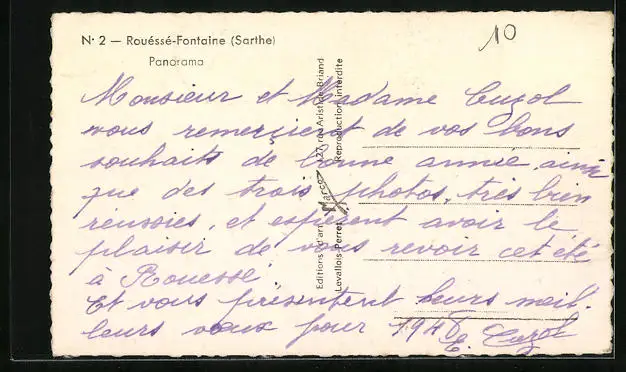 N° 2 — Rouéssé-Fontaine (Sarthe)
Panorama
10
Monsieur et Madame Cuzol
vous remercient de vos bons
souhaits de bonne année, ainsi
que des trois photos, très bien
réussies, et espèrent avoir le
plaisir de vous revoir cet été
à Rouessé.
Et vous présentent leurs meil-
leurs vœux pour 1948
E. Cuzol
Editions d'art 127, rue Aristide-Briand
Levallois-Perret Reproduction interdite